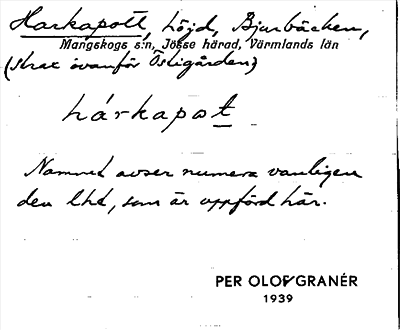 Harkapott, höjd, Bjurbäcken,
Mangskogs s:n, Jösse härad, Värmlands län
(strax ovanför Östigården)
hárkapot
Namnet avser numera vanligen
den lht, som är uppförd här.
PER OLOF GRANÉR
1939